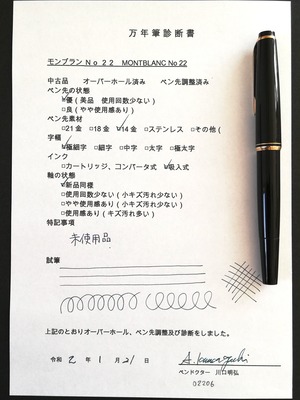 万年筆診断書
モンブランNo22 MONTBLANC No22
中古品 オーバーホール済み ペン先調整済み
ペン先の状態
☑優(美品 使用回数少ない)
□良(やや使用感あり)
ペン先素材
□21金 □18金 ☑14金 □ステンレス □その他(
字幅
☑極細字 □細字 □中字 □太字 □極太字
インク
□カートリッジ、コンバータ式 ☑吸入式
軸の状態
☑新品同様
□使用回数少ない(小キズ汚れ少ない)
□やや使用感あり(小キズ汚れ少ない)
□使用感あり(キズ汚れ多い)
特記事項
未使用品
試筆
上記のとおりオーバーホール、ペン先調整及び診断をしました。
令和 2 年 1 月 21 日
ペンドクター 川口明弘
02206